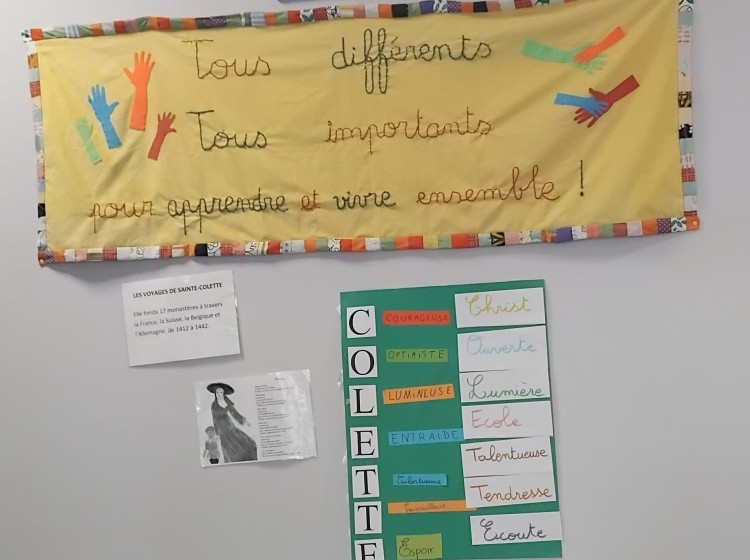 Tous différents
Tous importants
pour apprendre et vivre ensemble !
LES VOYAGES DE SAINTE-COLETTE
Elle fonda 17 monastères à travers
la France, la Suisse, la Belgique et
l'Allemagne, de 1412 à 1442.
C COURAGEUSE Christ
O OPTIMISTE Ouverte
L LUMINEUSE Lumière
E ENTRAIDE Ecole
T Talentueuse Talentueuse
T Tendresse
E Espoir Ecoute